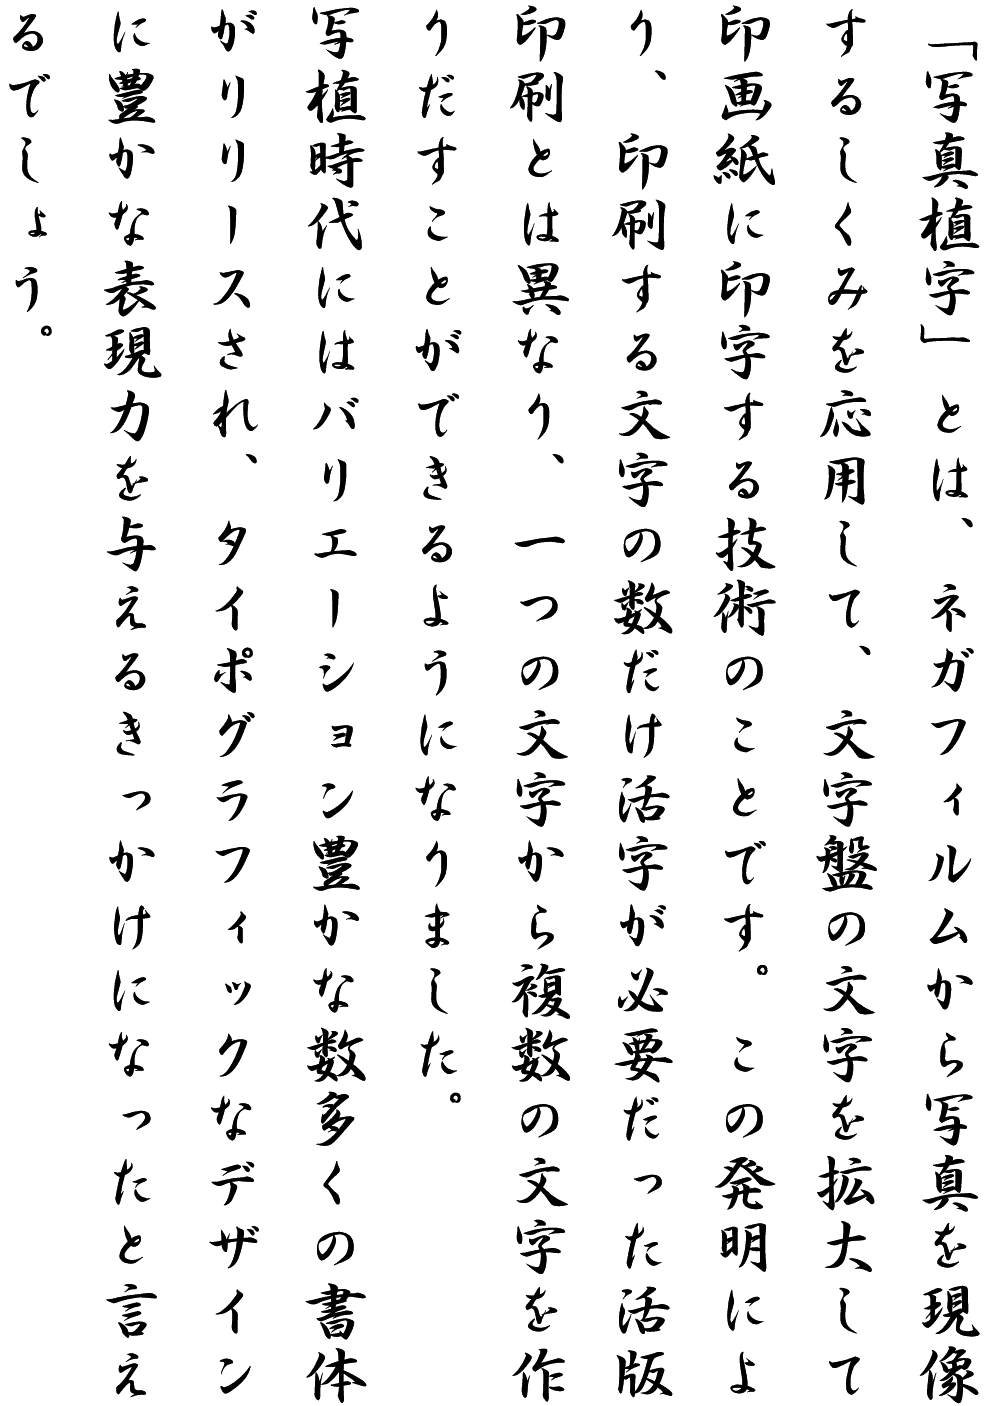 「写真植字」とは、ネガフィルムから写真を現像
するしくみを応用して、文字盤の文字を拡大して
印画紙に印字する技術のことです。この発明によ
り、印刷する文字の数だけ活字が必要だった活版
印刷とは異なり、一つの文字から複数の文字を作
りだすことができるようになりました。
写植時代にはバリエーション豊かな数多くの書体
がリリースされ、タイポグラフィックなデザイン
に豊かな表現力を与えるきっかけになったと言え
るでしょう。